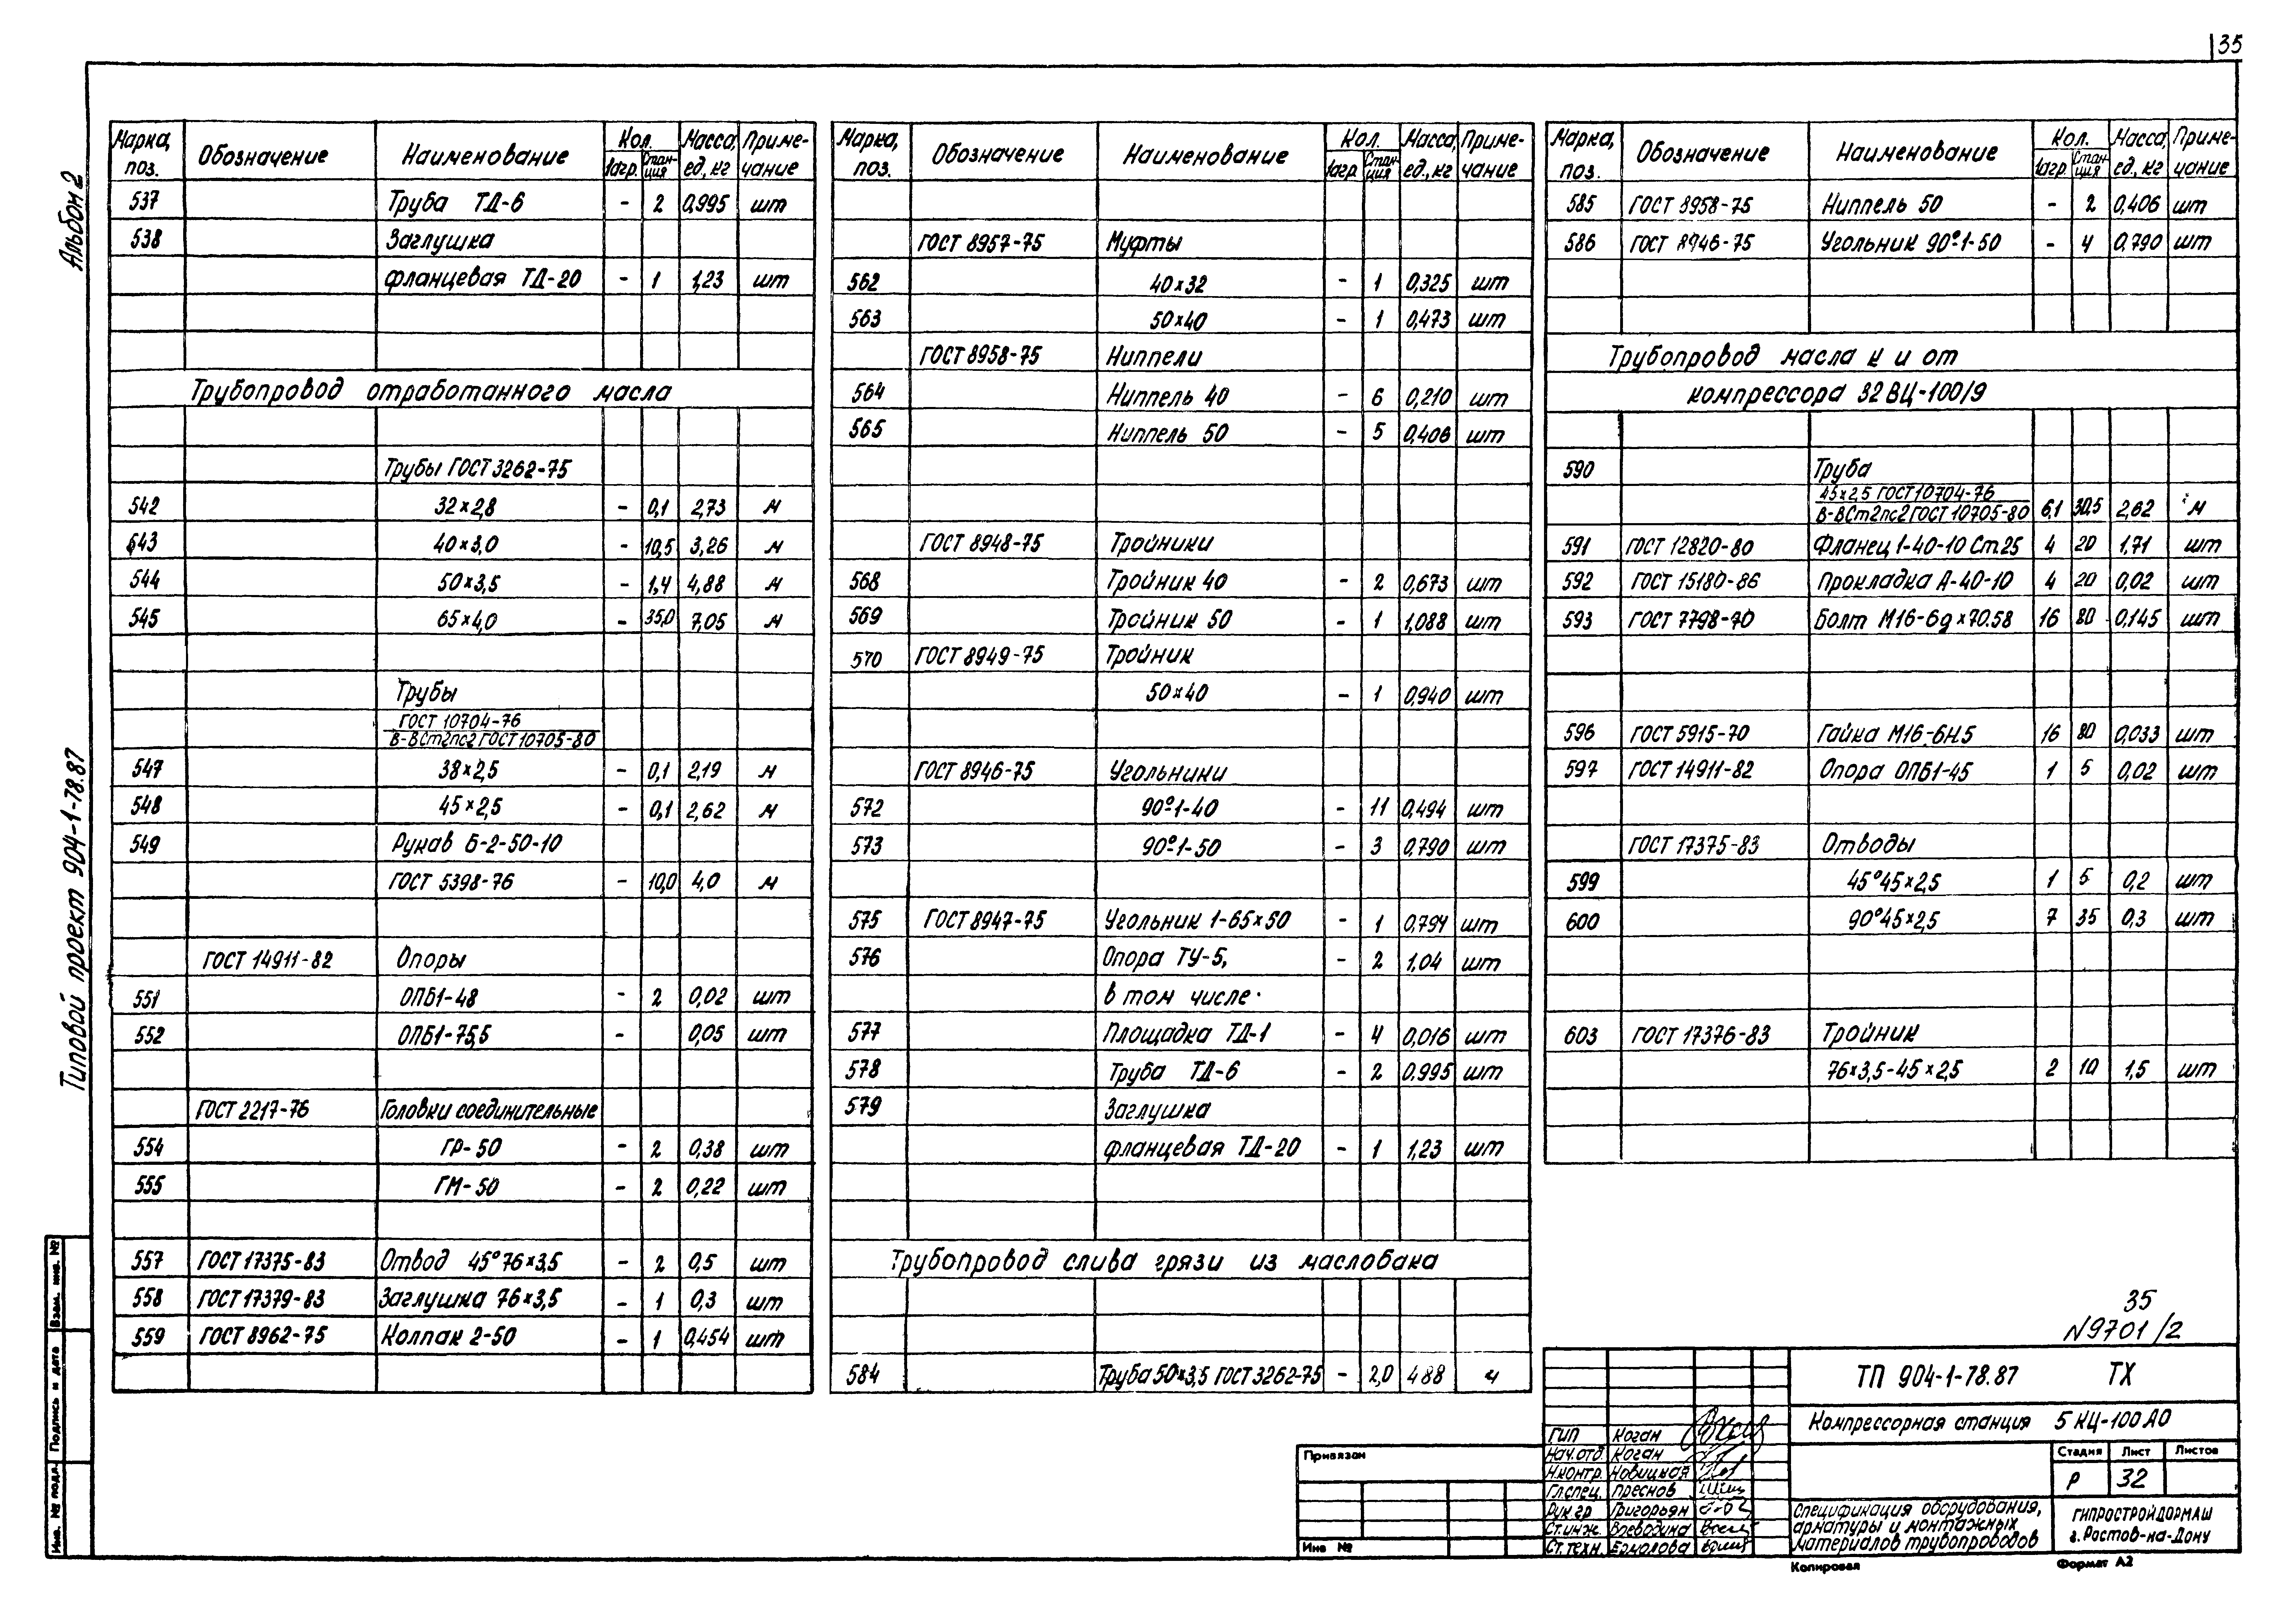 35
Альбом 2
Типовой проект 904-1-78.87
Марка, поз. Обозначение Наименование Кол. 1агр. Станция Масса, ед., кг Примечание
537 Труба ТД-6 - 2 0,995 шт
538 Заглушка
фланцевая ТД-20 - 1 1,23 шт
Трубопровод отработанного масла
Трубы ГОСТ 3262-75
542 32×2,8 - 0,1 2,73 м
543 40×3,0 - 10,5 3,26 м
544 50×3,5 - 1,4 4,88 м
545 65×4,0 - 35,0 7,05 м
Трубы
ГОСТ 10704-76
В-ВСт2пс2 ГОСТ 10705-80
547 38×2,5 - 0,1 2,19 м
548 45×2,5 - 0,1 2,62 м
549 Рукав Б-2-50-10
ГОСТ 5398-76 - 10,0 4,0 м
ГОСТ 14911-82 Опоры
551 ОПБ1-48 - 2 0,02 шт
552 ОПБ1-75,5 - 0,05 шт
ГОСТ 2217-76 Головки соединительные
554 ГР-50 - 2 0,38 шт
555 ГМ-50 - 2 0,22 шт
557 ГОСТ 17375-83 Отвод 45° 76×3,5 - 2 0,5 шт
558 ГОСТ 17379-83 Заглушка 76×3,5 - 1 0,3 шт
559 ГОСТ 8962-75 Колпак 2-50 - 1 0,454 шт
Марка, поз. Обозначение Наименование Кол. 1агр Станция Масса, ед., кг Примечание
ГОСТ 8957-75 Муфты
562 40×32 - 1 0,325 шт
563 50×40 - 1 0,473 шт
ГОСТ 8958-75 Ниппели
564 Ниппель 40 - 6 0,210 шт
565 Ниппель 50 - 5 0,406 шт
ГОСТ 8948-75 Тройники
568 Тройник 40 - 2 0,673 шт
569 Тройник 50 - 1 1,088 шт
570 ГОСТ 8949-75 Тройник
50×40 - 1 0,940 шт
ГОСТ 8946-75 Угольники
572 90°-1-40 - 11 0,494 шт
573 90°-1-50 - 3 0,790 шт
575 ГОСТ 8947-75 Угольник 1-65×50 - 1 0,794 шт
576 Опора ТУ-5, - 2 1,04 шт
в том числе
577 Площадка ТД-1 - 4 0,016 шт
578 Труба ТД-6 - 2 0,995 шт
579 Заглушка
фланцевая ТД-20 - 1 1,23 шт
Трубопровод слива грязи из маслобака
584 Труба 50×3,5 ГОСТ 3262-75 - 2,0 4,88 м
Марка, поз. Обозначение Наименование Кол. 1агр Станция Масса, ед., кг Примечание
585 ГОСТ 8958-75 Ниппель 50 - 2 0,406 шт
586 ГОСТ 8946-75 Угольник 90°-1-50 - 4 0,790 шт
Трубопровод масла к и от
компрессора 32ВЦ-100/9
590 Труба
45×2,5 ГОСТ 10704-76
В-ВСт2пс2 ГОСТ 10705-80 6,1 30,5 2,62 м
591 ГОСТ 12820-80 Фланец 1-40-10 Ст.25 4 20 1,71 шт
592 ГОСТ 15180-86 Прокладка А-40-10 4 20 0,02 шт
593 ГОСТ 7798-70 Болт М16-6g×70.58 16 80 0,145 шт
596 ГОСТ 5915-70 Гайка М16-6Н.5 16 80 0,033 шт
597 ГОСТ 14911-82 Опора ОПБ1-45 1 5 0,02 шт
ГОСТ 17375-83 Отводы
599 45°45×2,5 1 5 0,2 шт
600 90°45×2,5 7 35 0,3 шт
603 ГОСТ 17376-83 Тройник
76×3,5-45×2,5 2 10 1,5 шт
35
N9701/2
ТП 904-1-78.87 ТХ
Компрессорная станция 5 КЦ-100 АО
Стадия Лист Листов
Р 32
Спецификация оборудования,
арматуры и монтажных
материалов трубопроводов
ГИПРОСТРОЙДОРМАШ
г. Ростов-на-Дону
ГИП Коган
Нач.отд. Коган
Н.контр. Новицкая
Гл.спец. Преснов
Рук.гр Григорьян
Ст.инж. Воеводина
Ст.техн. Ермолова
Привязан
Инв №
Копировал
Формат А2
Взам. инв. №
Подпись и дата
Инв. № подл.